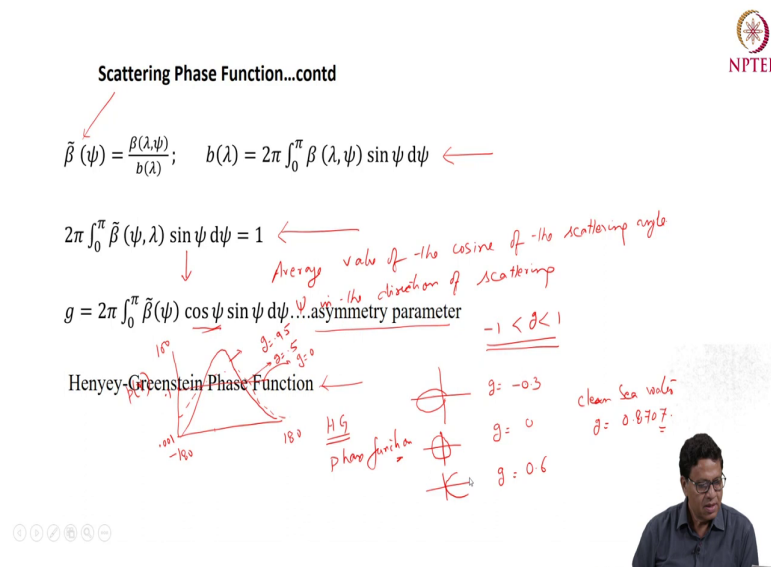 NPTEL
Scattering Phase Function...contd
β̃ (ψ) = β(λ,ψ)/b(λ) ; b(λ) = 2π ∫₀^π β (λ, ψ) sin ψ dψ
2π ∫₀^π β̃ (ψ, λ) sin ψ dψ = 1
Average value of the cosine of the scattering angle
ψ in the direction of scattering
g = 2π ∫₀^π β̃(ψ) cos ψ sin ψ dψ....asymmetry parameter
-1 < g < 1
g=.95
g=.5
g=0
100
Henyey-Greenstein Phase Function
.1
.001
-180
180
HG
Phase function
g= -0.3
g= 0
g= 0.6
clean sea water
g= 0.8707.